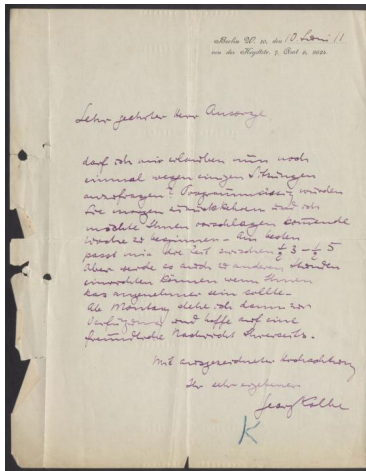 Berlin W. 10, den 10 Juni 11
von der Heydtstr. 7. Amt 6, 
Sehr geehrter Herr Ansorge
darf ich mir erlauben nun noch
einmal wegen einigen Sitzungen
anzufragen? Programmässig würden
Sie morgen zurückkehren und ich
möchte Ihnen vorschlagen kommende
Woche zu beginnen. Am besten
passt mir die Zeit zwischen ½ 3 - ½ 5
Aber werde es auch zu anderen Stunden
einrichten können wenn Ihnen
das angenehmer sein sollte.
Ab Montag stehe ich dann zur
Verfügung und hoffe auf eine
freundliche Nachricht Ihrerseits.
Mit ausgezeichneter Hochachtung
Ihr sehr ergebener
Georg Kolbe
K